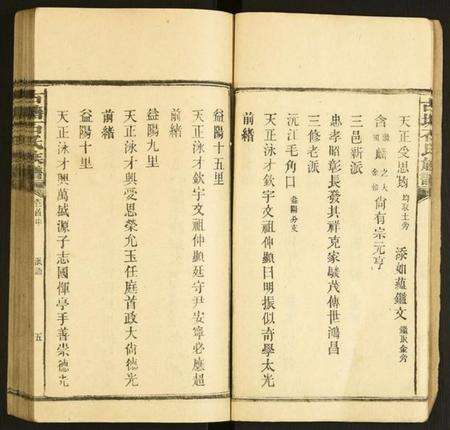 天正受思均 均取土旁 添如蘊鑑文 鑑取金旁
含 麟 之大 尙有宗元亨
三邑新派
忠孝昭彰長發其祥克家駿茂傳世鴻昌
三修老派
沅江毛角口 益陽分支
天正泳才欽宇文祖仲顯日明振似奇學太光
前緒
益陽十五里
天正泳才欽宇文祖仲顯延守尹安寧必應超
前緒
益陽九里
天正泳才興愛思榮允玉任庭首政大尙德光
前緒
益陽十里
天正泳才興萬盛源子志國偉亭手善崇德光
卷首中
派語
五
氏族譜